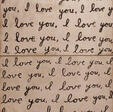 you, I love you, I
I love you, I love
you, I love you, I
love you, I love you
I love you, I love
you, I love you, I
love you, I love
you, I love you, I
love you, I love